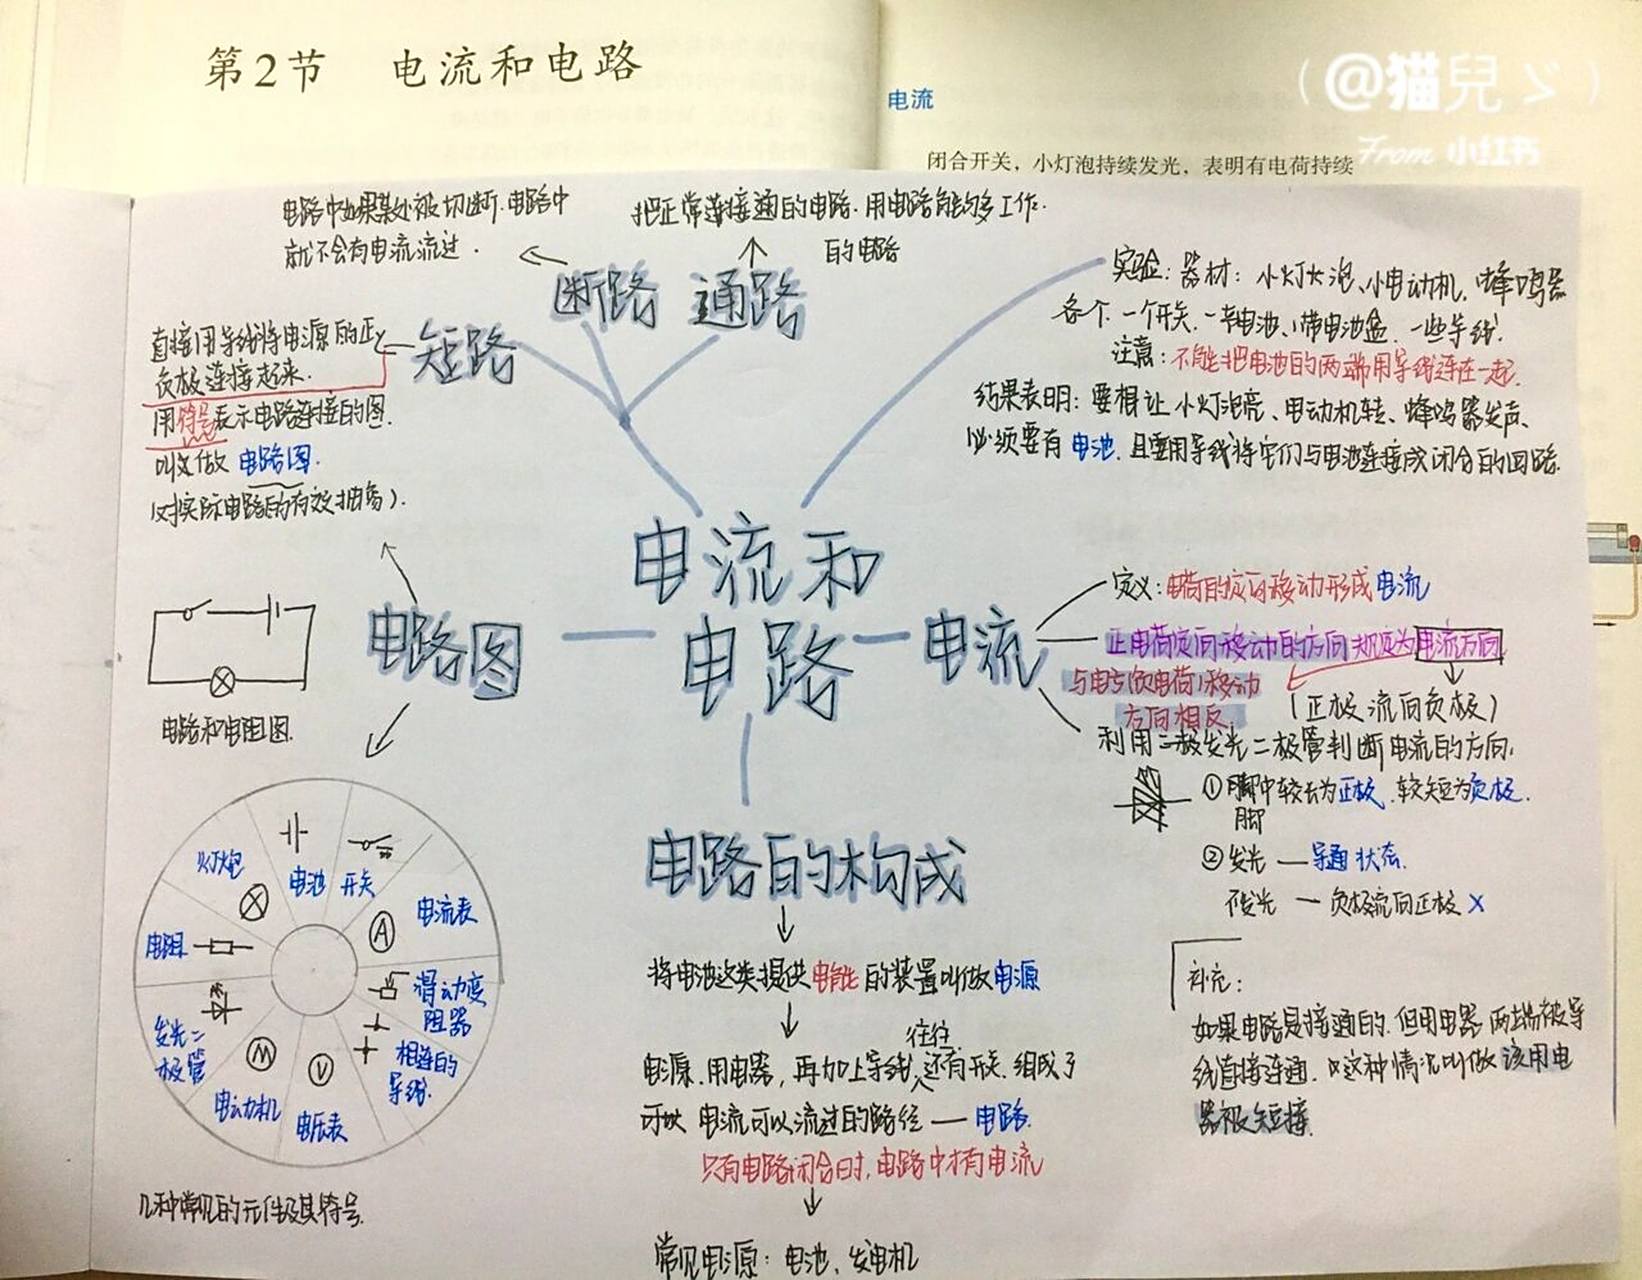 第2节 电流和电路
(@猫兒ゞ)
From 小红书
电流
闭合开关，小灯泡持续发光，表明有电荷持续
电路中如果某处被切断.电路中
就不会有电流流过.
把正常连接通的电路.用电路能够多工作.
的电路
断路 通路
短路
直接用导线将电源的正
负极连接起来.
用符号表示电路连接的图.
叫做 电路图.
(对实际电路的有效抽象).
实验: 器材: 小灯泡、小电动机、蜂鸣器
各个.一个开关.一节电池、带电池盒.一些导线.
注意: 不能把电池的两端用导线连在一起.
结果表明: 要想让小灯泡亮、电动机转、蜂鸣器发声、
必须要有电池.且要用导线将它们与电池连接成闭合的回路.
电流和
电路
电路图
电路和电阻图.
电流
定义: 电荷的定向移动形成电流
正电荷定向移动的方向规定为电流方向
与电子(负电荷)移动
方向相反.
(正极流向负极)
利用发光二极管判断电流的方向.
①脚中较长为正极.较短为负极.
脚
②发光 — 导通状态.
— 负极流向正极 X
电路的构成
将电池这类提供电能的装置叫做电源
往往
电源.用电器,再加上导线,还有开关.组成了
可以 电流可以流过的路径 — 电路.
只有电路闭合时,电路中才有电流
常见电源: 电池、发电机
补充:
如果电路是接通的.但用电器两端被导
线直接连通.这种情况叫做该用电
器被短接.
灯泡
电池
开关
电流表
A
电阻
滑动变
阻器
发光二
极管
M
电动机
V
电压表
相连的
导线.
几种常见的元件及其符号.